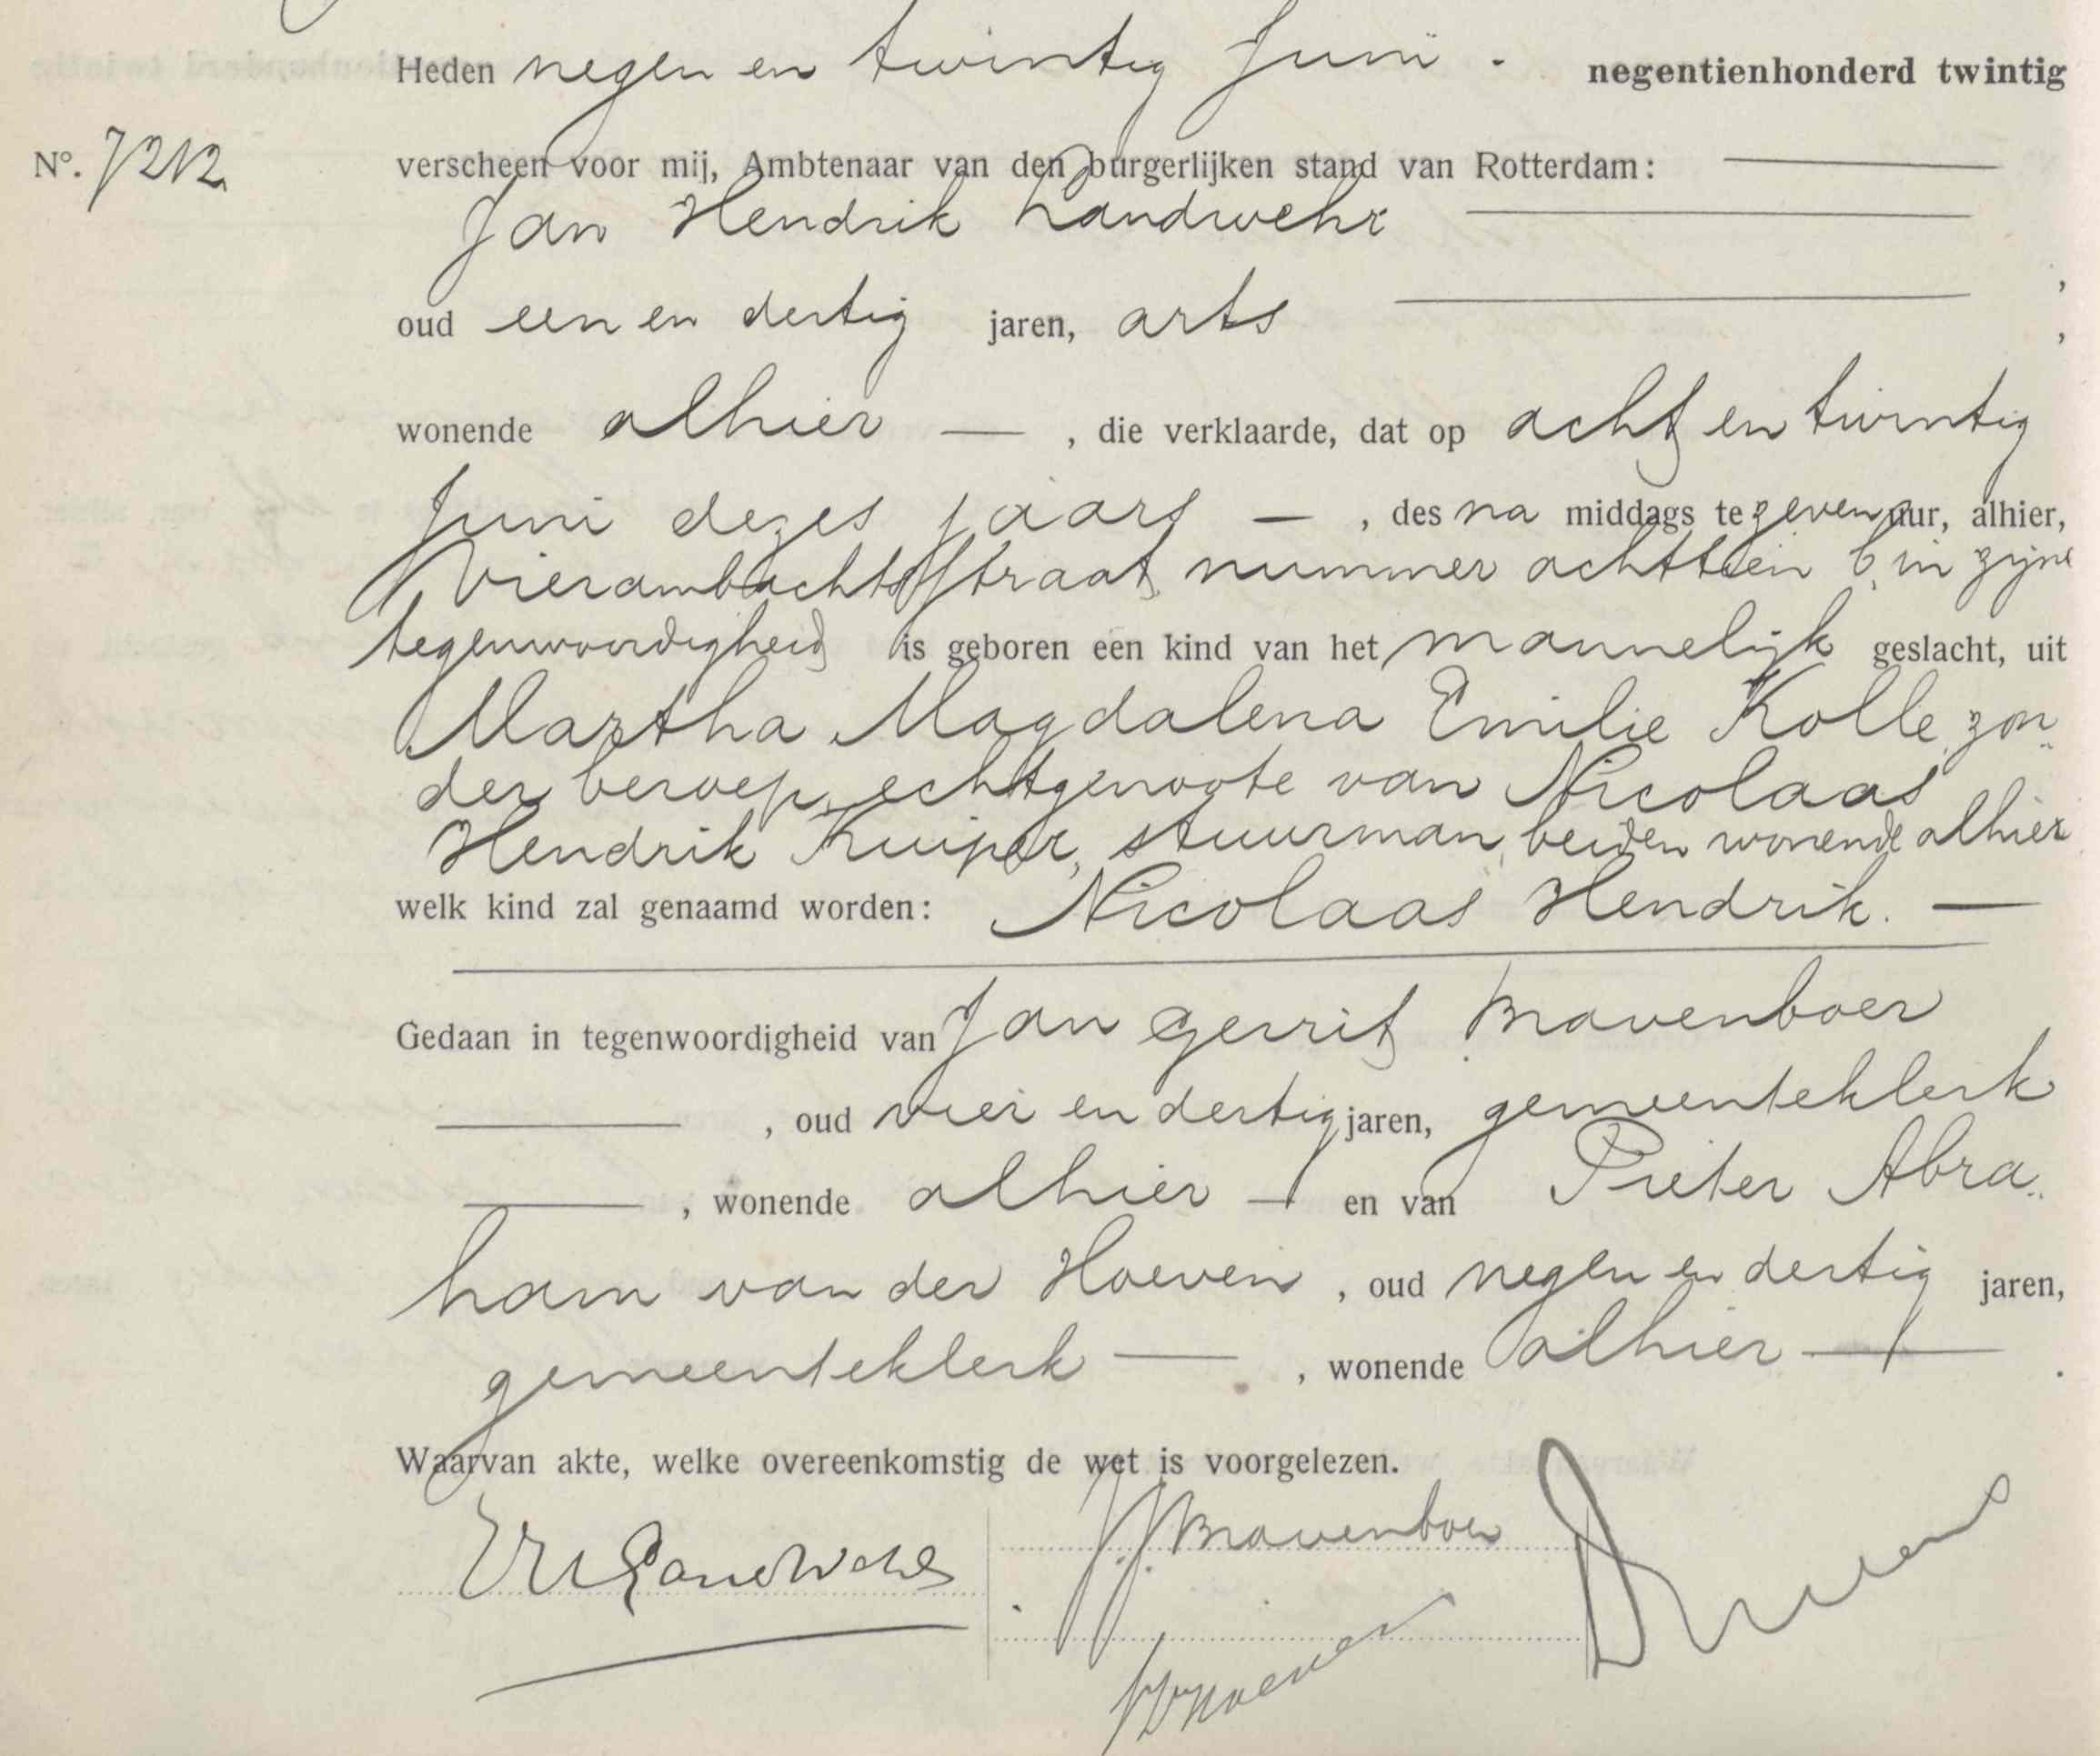 Heden negen en twintig Juni . negentienhonderd twintig
No. 7212 verscheen voor mij, Ambtenaar van den burgerlijken stand van Rotterdam:
Jan Hendrik Landwehr
oud een en dertig jaren, arts ,
wonende alhier — , die verklaarde, dat op acht en twintig
Juni dezes jaars — , des na middags te zeven uur, alhier,
Vierambachtsstraat nummer achttien b, in zijne
tegenwoordigheid is geboren een kind van het mannelijk geslacht, uit
Martha Magdalena Emilie Kolle, zon
der beroep, echtgenoote van Nicolaas
Hendrik Kuiper, stuurman, beiden wonende alhier
welk kind zal genaamd worden: Nicolaas Hendrik. —
Gedaan in tegenwoordigheid van Jan Gerrit Bravenboer
, oud vier en dertig jaren, gemeenteklerk
, wonende alhier — en van Pieter Abra
ham van der Hoeven , oud negen en dertig jaren,
gemeenteklerk — , wonende alhier — .
Waarvan akte, welke overeenkomstig de wet is voorgelezen.
JHLandwehr J.G. Bravenboer